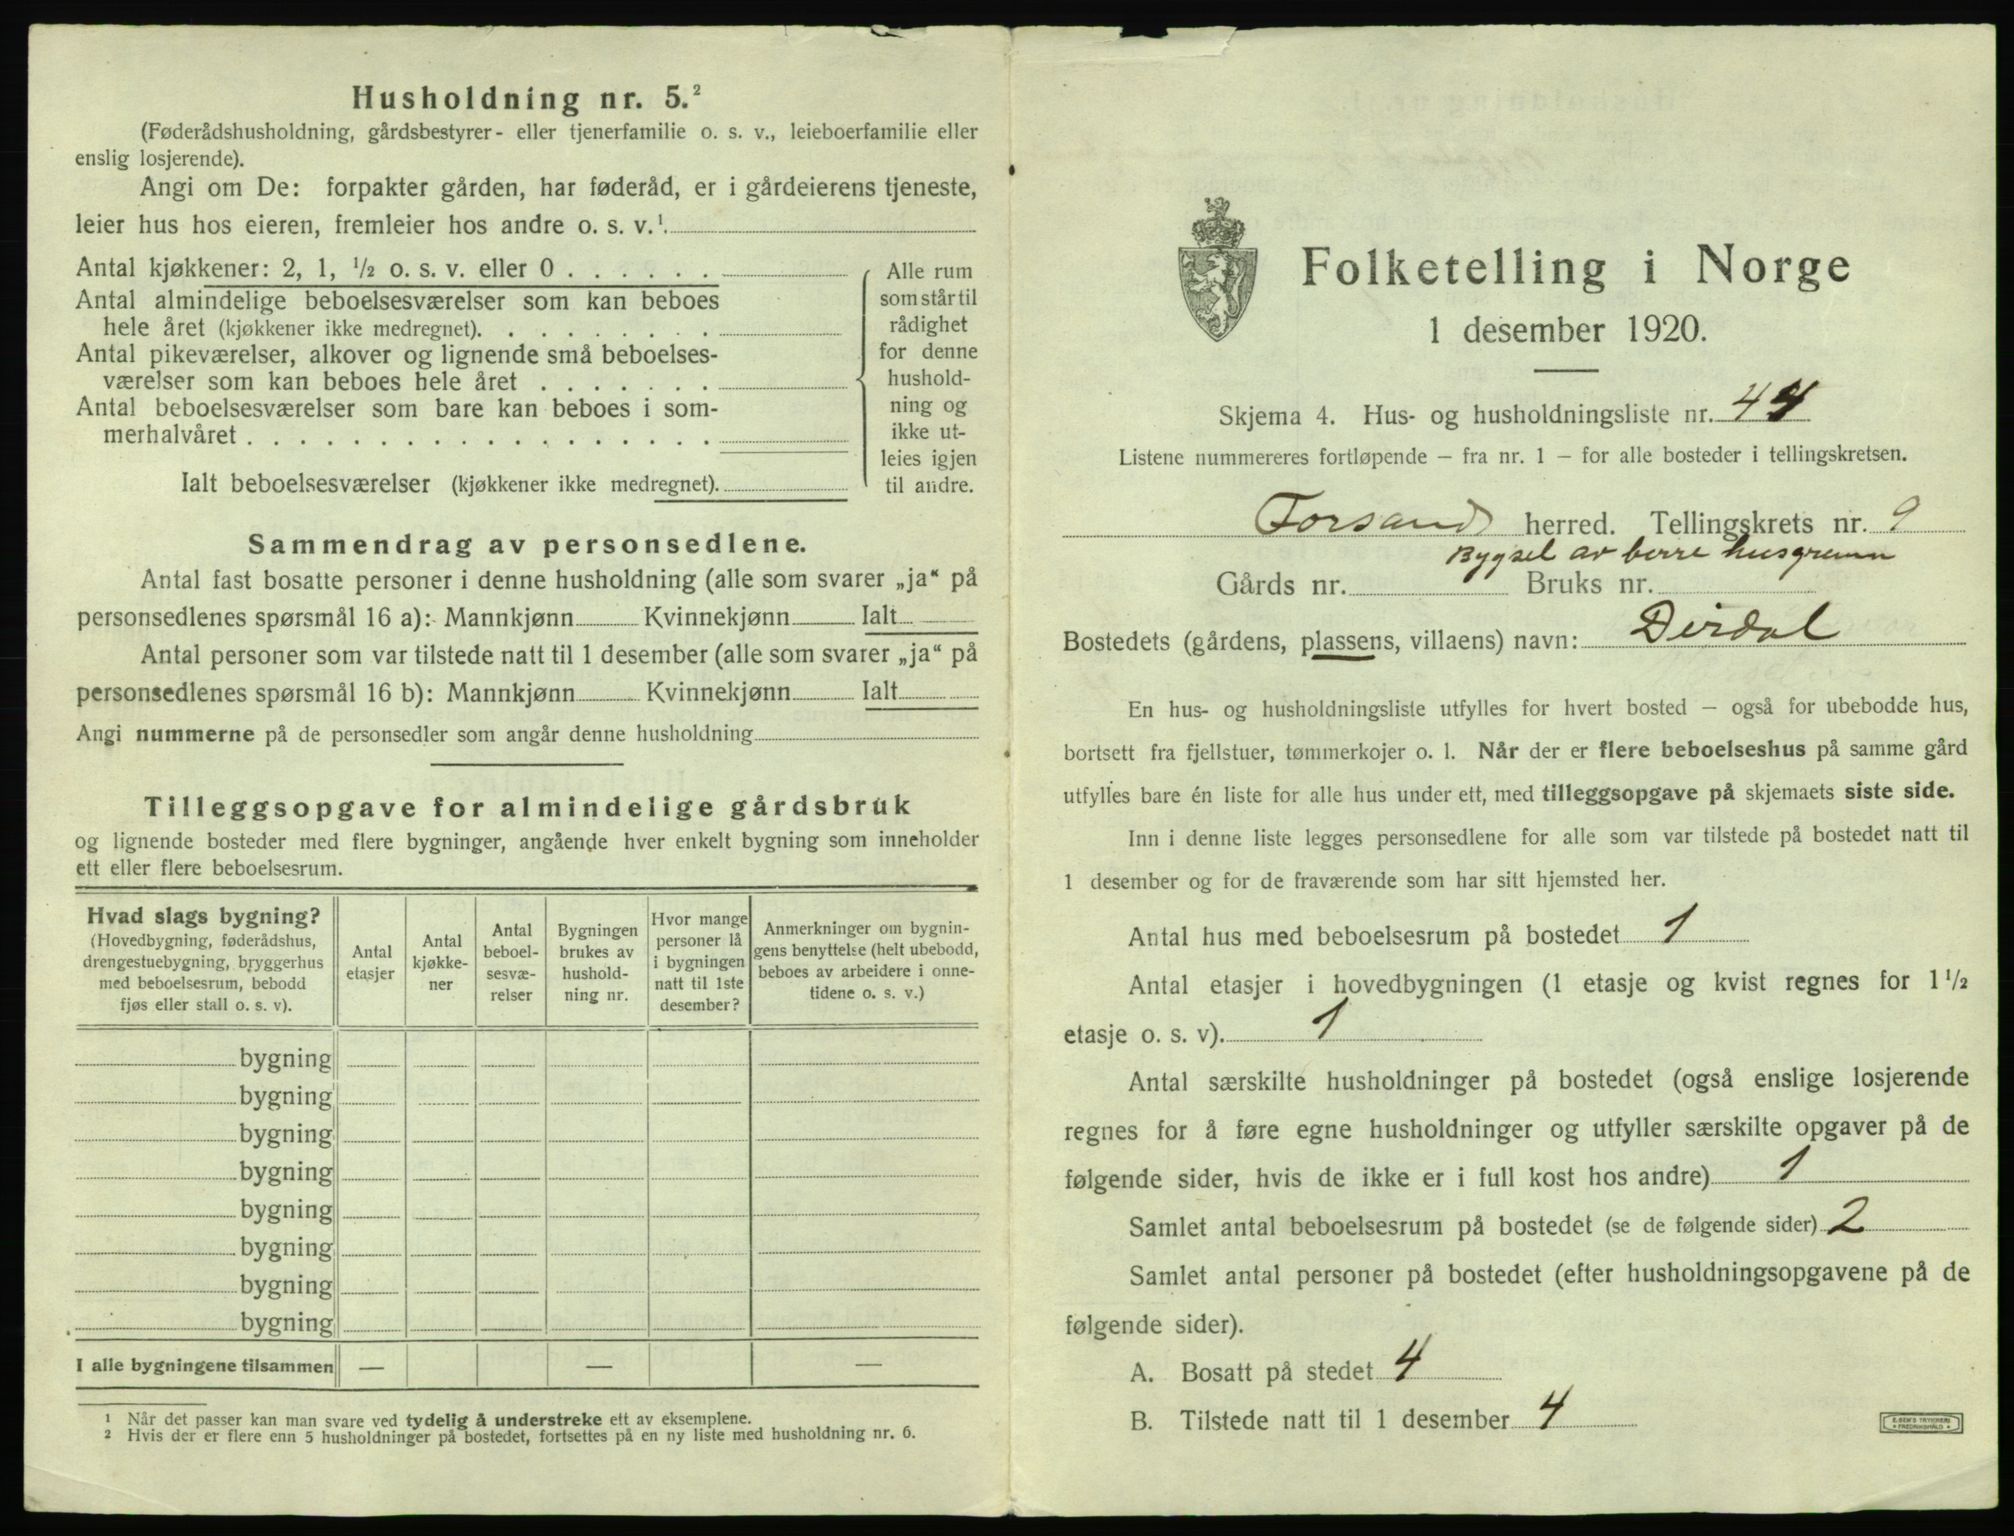 Husholdning nr. 5.²
(Føderådshusholdning, gårdsbestyrer- eller tjenerfamilie o. s. v., leieboerfamilie eller
enslig losjerende).
Angi om De: forpakter gården, har føderåd, er i gårdeierens tjeneste,
leier hus hos eieren, fremleier hos andre o. s. v.¹.
Antal kjøkkener: 2, 1, ½ o. s. v. eller 0 . . . . . .
Antal almindelige beboelsesværelser som kan beboes
hele året (kjøkkener ikke medregnet). . . . . . . . .
Antal pikeværelser, alkover og lignende små beboelses-
værelser som kan beboes hele året . . . . . . .
Antal beboelsesværelser som bare kan beboes i som-
merhalvåret . . . . . . . . . . . . . . . . . .
Ialt beboelsesværelser (kjøkkener ikke medregnet).
Alle rum
som står til
rådighet
for denne
hushold-
ning og
ikke ut-
leies igjen
til andre.
Sammendrag av personsedlene.
Antal fast bosatte personer i denne husholdning (alle som svarer „ja“ på
personsedlenes spørsmål 16 a): Mannkjønn Kvinnekjønn Ialt
Antal personer som var tilstede natt til 1 desember (alle som svarer „ja“ på
personsedlenes spørsmål 16 b): Mannkjønn Kvinnekjønn Ialt
Angi nummerne på de personsedler som angår denne husholdning
Tilleggsopgave for almindelige gårdsbruk
og lignende bosteder med flere bygninger, angående hver enkelt bygning som inneholder
ett eller flere beboelsesrum.
Hvad slags bygning?
(Hovedbygning, føderådshus,
drengestuebygning, bryggerhus
med beboelsesrum, bebodd
fjøs eller stall o. s. v).
Antal
etasjer
Antal
kjøkke-
ner
Antal
beboel-
sesvæ-
relser
Bygningen
brukes av
hushold-
ning nr.
Hvor mange
personer lå
i bygningen
natt til 1ste
desember?
Anmerkninger om bygnin-
gens benyttelse (helt ubebodd,
beboes av arbeidere i onne-
tidene o. s. v.)
bygning
bygning
bygning
bygning
bygning
bygning
bygning
bygning
I alle bygningene tilsammen — — —
¹ Når det passer kan man svare ved tydelig å understreke ett av eksemplene.
² Hvis der er flere enn 5 husholdninger på bostedet, fortsettes på en ny liste med husholdning nr. 6.
Folketelling i Norge
1 desember 1920.
Skjema 4. Hus- og husholdningsliste nr. 44
Listene nummereres fortløpende — fra nr. 1 — for alle bosteder i tellingskretsen.
Forsand herred. Tellingskrets nr. 9
Bygsel av berre husgrunn
Gårds nr. Bruks nr.
Bostedets (gårdens, plassens, villaens) navn: Dirdal
En hus- og husholdningsliste utfylles for hvert bosted — også for ubebodde hus,
bortsett fra fjellstuer, tømmerkojer o. l. Når der er flere beboelseshus på samme gård
utfylles bare én liste for alle hus under ett, med tilleggsopgave på skjemaets siste side.
Inn i denne liste legges personsedlene for alle som var tilstede på bostedet natt til
1 desember og for de fraværende som har sitt hjemsted her.
Antal hus med beboelsesrum på bostedet 1
Antal etasjer i hovedbygningen (1 etasje og kvist regnes for 1½
etasje o. s. v). 1
Antal særskilte husholdninger på bostedet (også enslige losjerende
regnes for å føre egne husholdninger og utfyller særskilte opgaver på de
følgende sider, hvis de ikke er i full kost hos andre) 1
Samlet antal beboelsesrum på bostedet (se de følgende sider) 2
Samlet antal personer på bostedet (efter husholdningsopgavene på de
følgende sider).
A. Bosatt på stedet 4
B. Tilstede natt til 1 desember 4